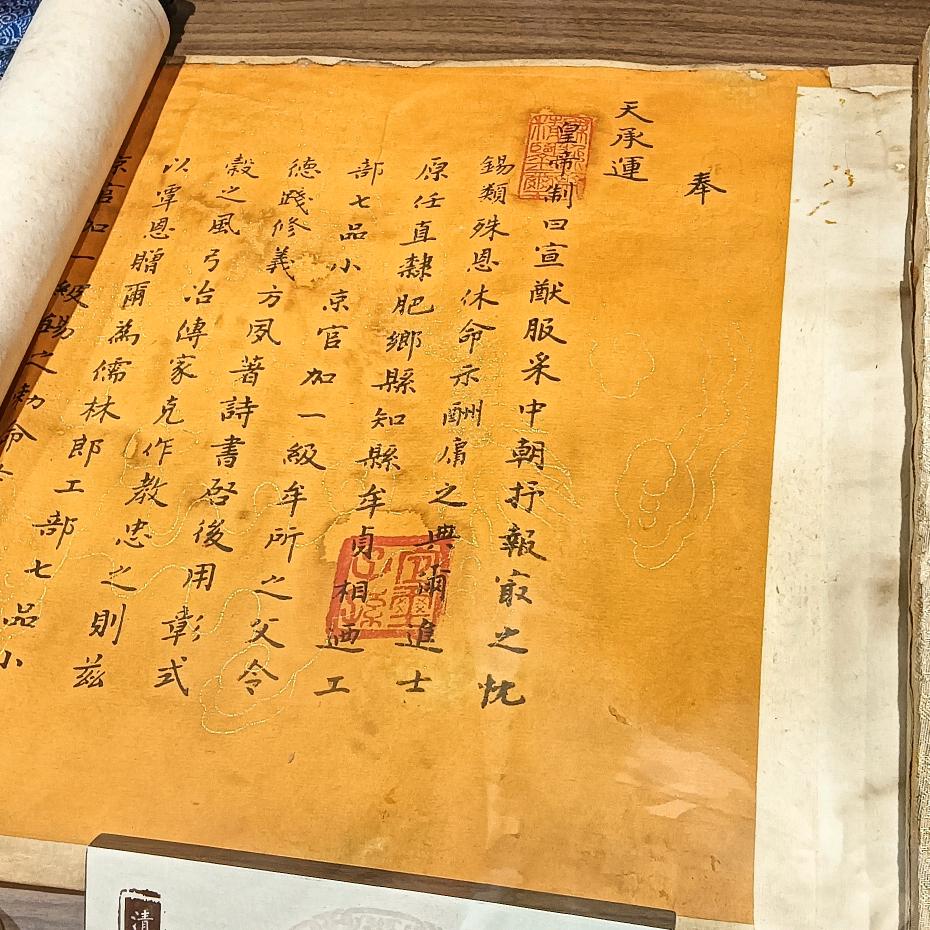 奉
天承運
皇帝制曰宣猷服采中朝抒報最之忱
錫類殊恩休命示酬庸之典爾進士
原任直隸肥鄉縣知縣牟貞相迺工
部七品小京官加一級牟所之父令
德踐修義方夙著詩書啓後用彰式
穀之風弓冶傳家克作教忠之則茲
以覃恩贈爾為儒林郎工部七品小
京官加一級錫之勑命
清